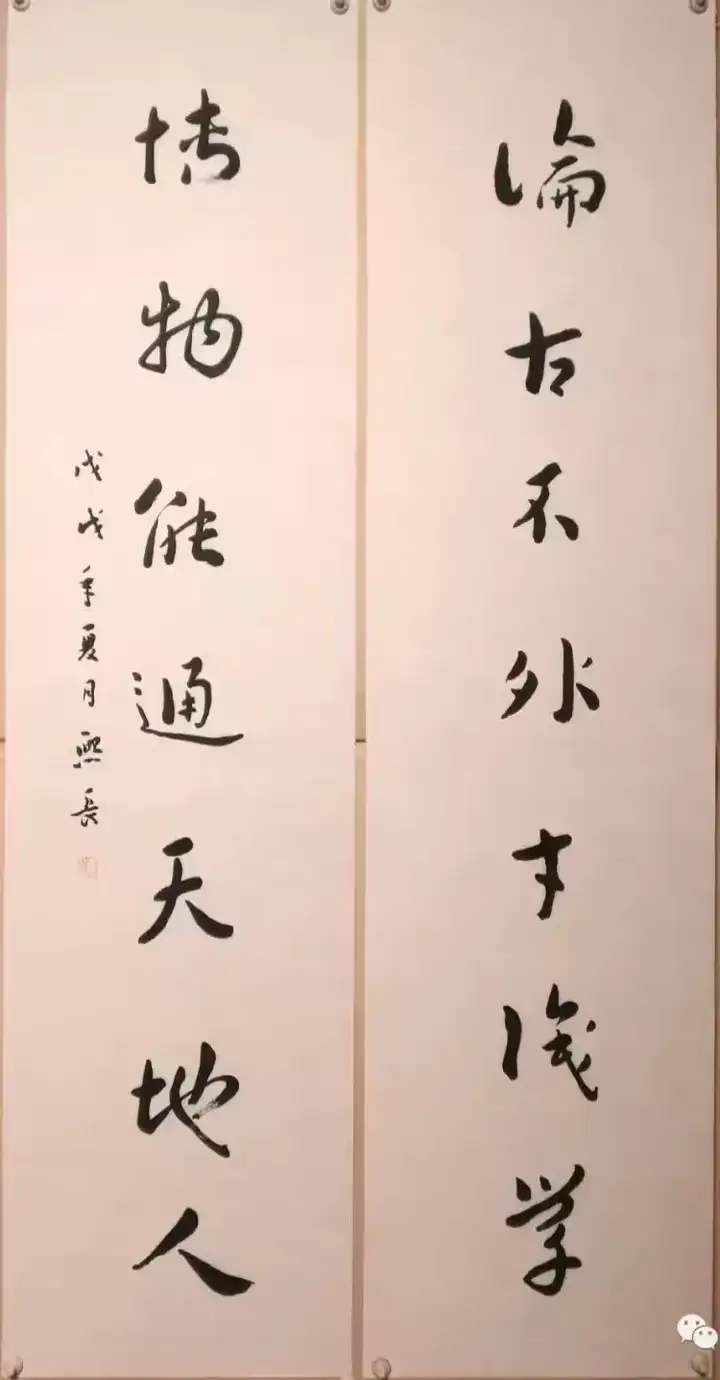 論古不外才識学
博物能通天地人
戊戌年夏月熙長